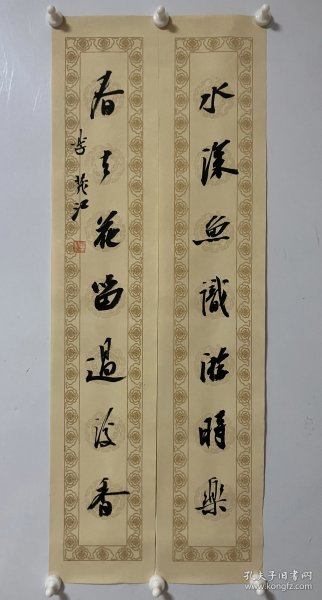 水深魚識游時樂
春去花留過後香
孔夫子旧书网